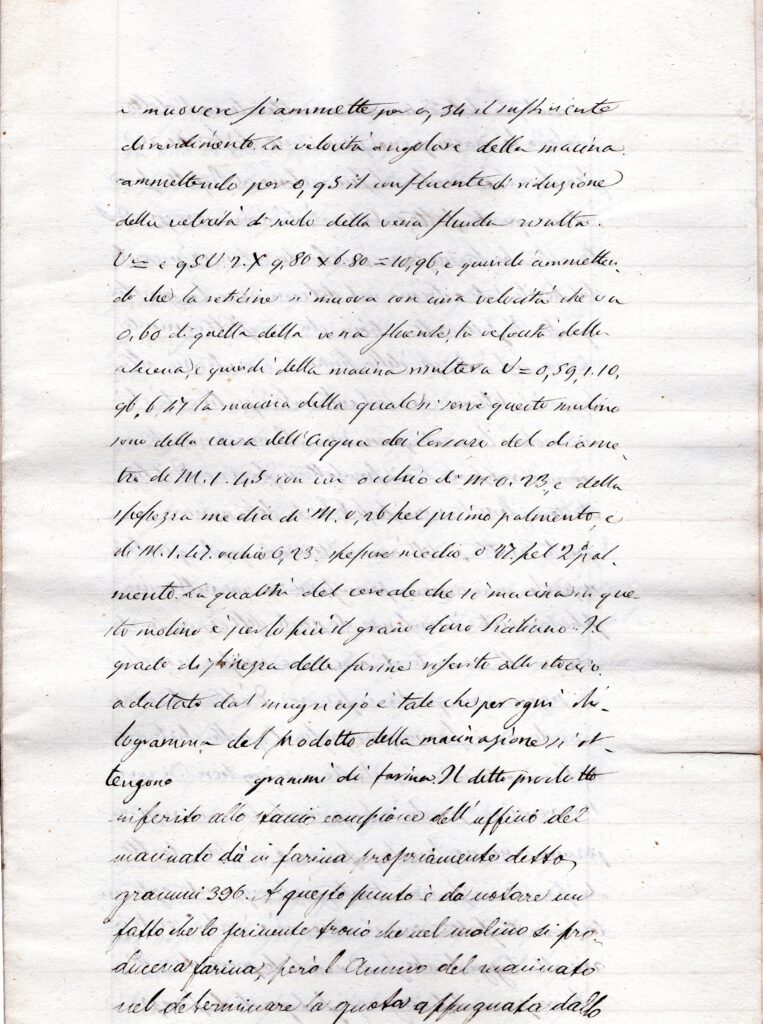 a muovere si ammette per 0,34 il
di rendimento. La velocità angolare della macina
ammettendo per 0,95 il di riduzione
della velocità di della vena fluida
V = 2 X 9,80 x 6.80 = 10,96, e quindi ammetten-
do che la si muova con una velocità che va
0,60 di quella della vena fluente, la velocità della
e quindi della macina V = 0,59,1.10,
96, 6.47 la macina della quale si serve questo mulino
sono della cava dell'Acqua dei Corsari del diame-
tro di M. 1.45 con un occhio di M. 0.23, e della
spessezza media di M. 0,26 pel primo palmento, e
di M. 1.47. occhio 0,23. medio 0 27. pel 2° pal-
mento. La qualità del cereale che si macina in que-
sto molino è per lo più il grano duro Siciliano. Il
grado di finezza della farina riferito allo staccio
adattato dal mugnajo è tale che per ogni chi-
logramma del prodotto della macinazione si ot-
tengono grammi di farina. Il detto prodotto
riferito allo staccio campione dell'uffizio del
macinato dà in farina propriamente detta,
grammi 396. A questo punto è da notare un
fatto che lo scrivente trovò che nel molino si pro-
duceva farina, però l' del macinato
nel determinare la quota dallo